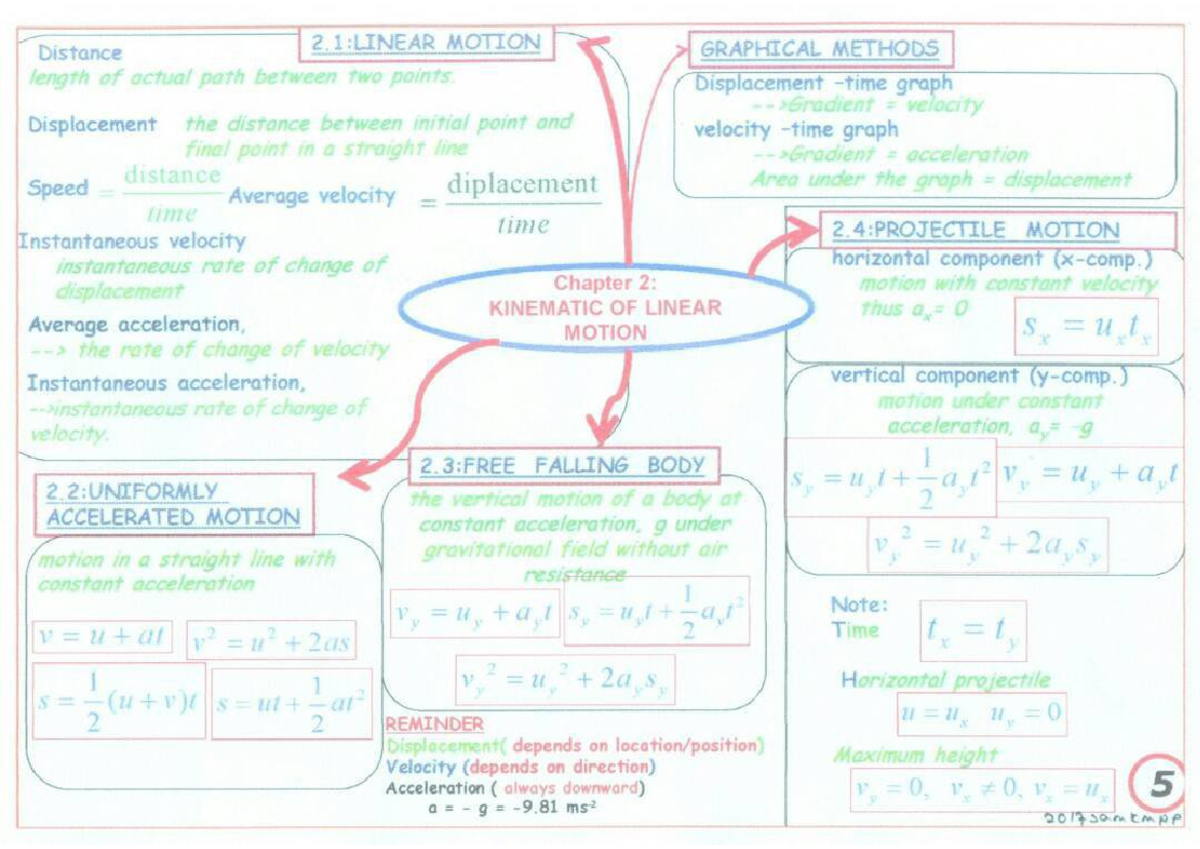 Chapter 2:
KINEMATIC OF LINEAR
MOTION
2.1:LINEAR MOTION
Distance
length of actual path between two points.
Displacement the distance between initial point and
final point in a straight line
Speed = distance / time Average velocity = diplacement / time
Instantaneous velocity
instantaneous rate of change of
displacement
Average acceleration,
--> the rate of change of velocity
Instantaneous acceleration,
-->instantaneous rate of change of
velocity.
GRAPHICAL METHODS
Displacement -time graph
-->Gradient = velocity
velocity -time graph
-->Gradient = acceleration
Area under the graph = displacement
2.2:UNIFORMLY
ACCELERATED MOTION
motion in a straight line with
constant acceleration
v = u + at v² = u² + 2as
s = 1/2 (u + v)t s = ut + 1/2 at²
2.3:FREE FALLING BODY
the vertical motion of a body at
constant acceleration, g under
gravitational field without air
resistance
v_y = u_y + a_y t s_y = u_y t + 1/2 a_y t²
v_y² = u_y² + 2a_y s_y
REMINDER
Displacement( depends on location/position)
Velocity (depends on direction)
Acceleration ( always downward)
a = - g = -9.81 ms⁻²
2.4:PROJECTILE MOTION
horizontal component (x-comp.)
motion with constant velocity
thus a_x= 0
s_x = u_x t_x
vertical component (y-comp.)
motion under constant
acceleration, a_y= -g
s_y = u_y t + 1/2 a_y t² v_y = u_y + a_y t
v_y² = u_y² + 2a_y s_y
Note:
Time t_x = t_y
Horizontal projectile
u = u_x u_y = 0
Maximum height
v_y = 0, v_x ≠ 0, v_x = u_x
5